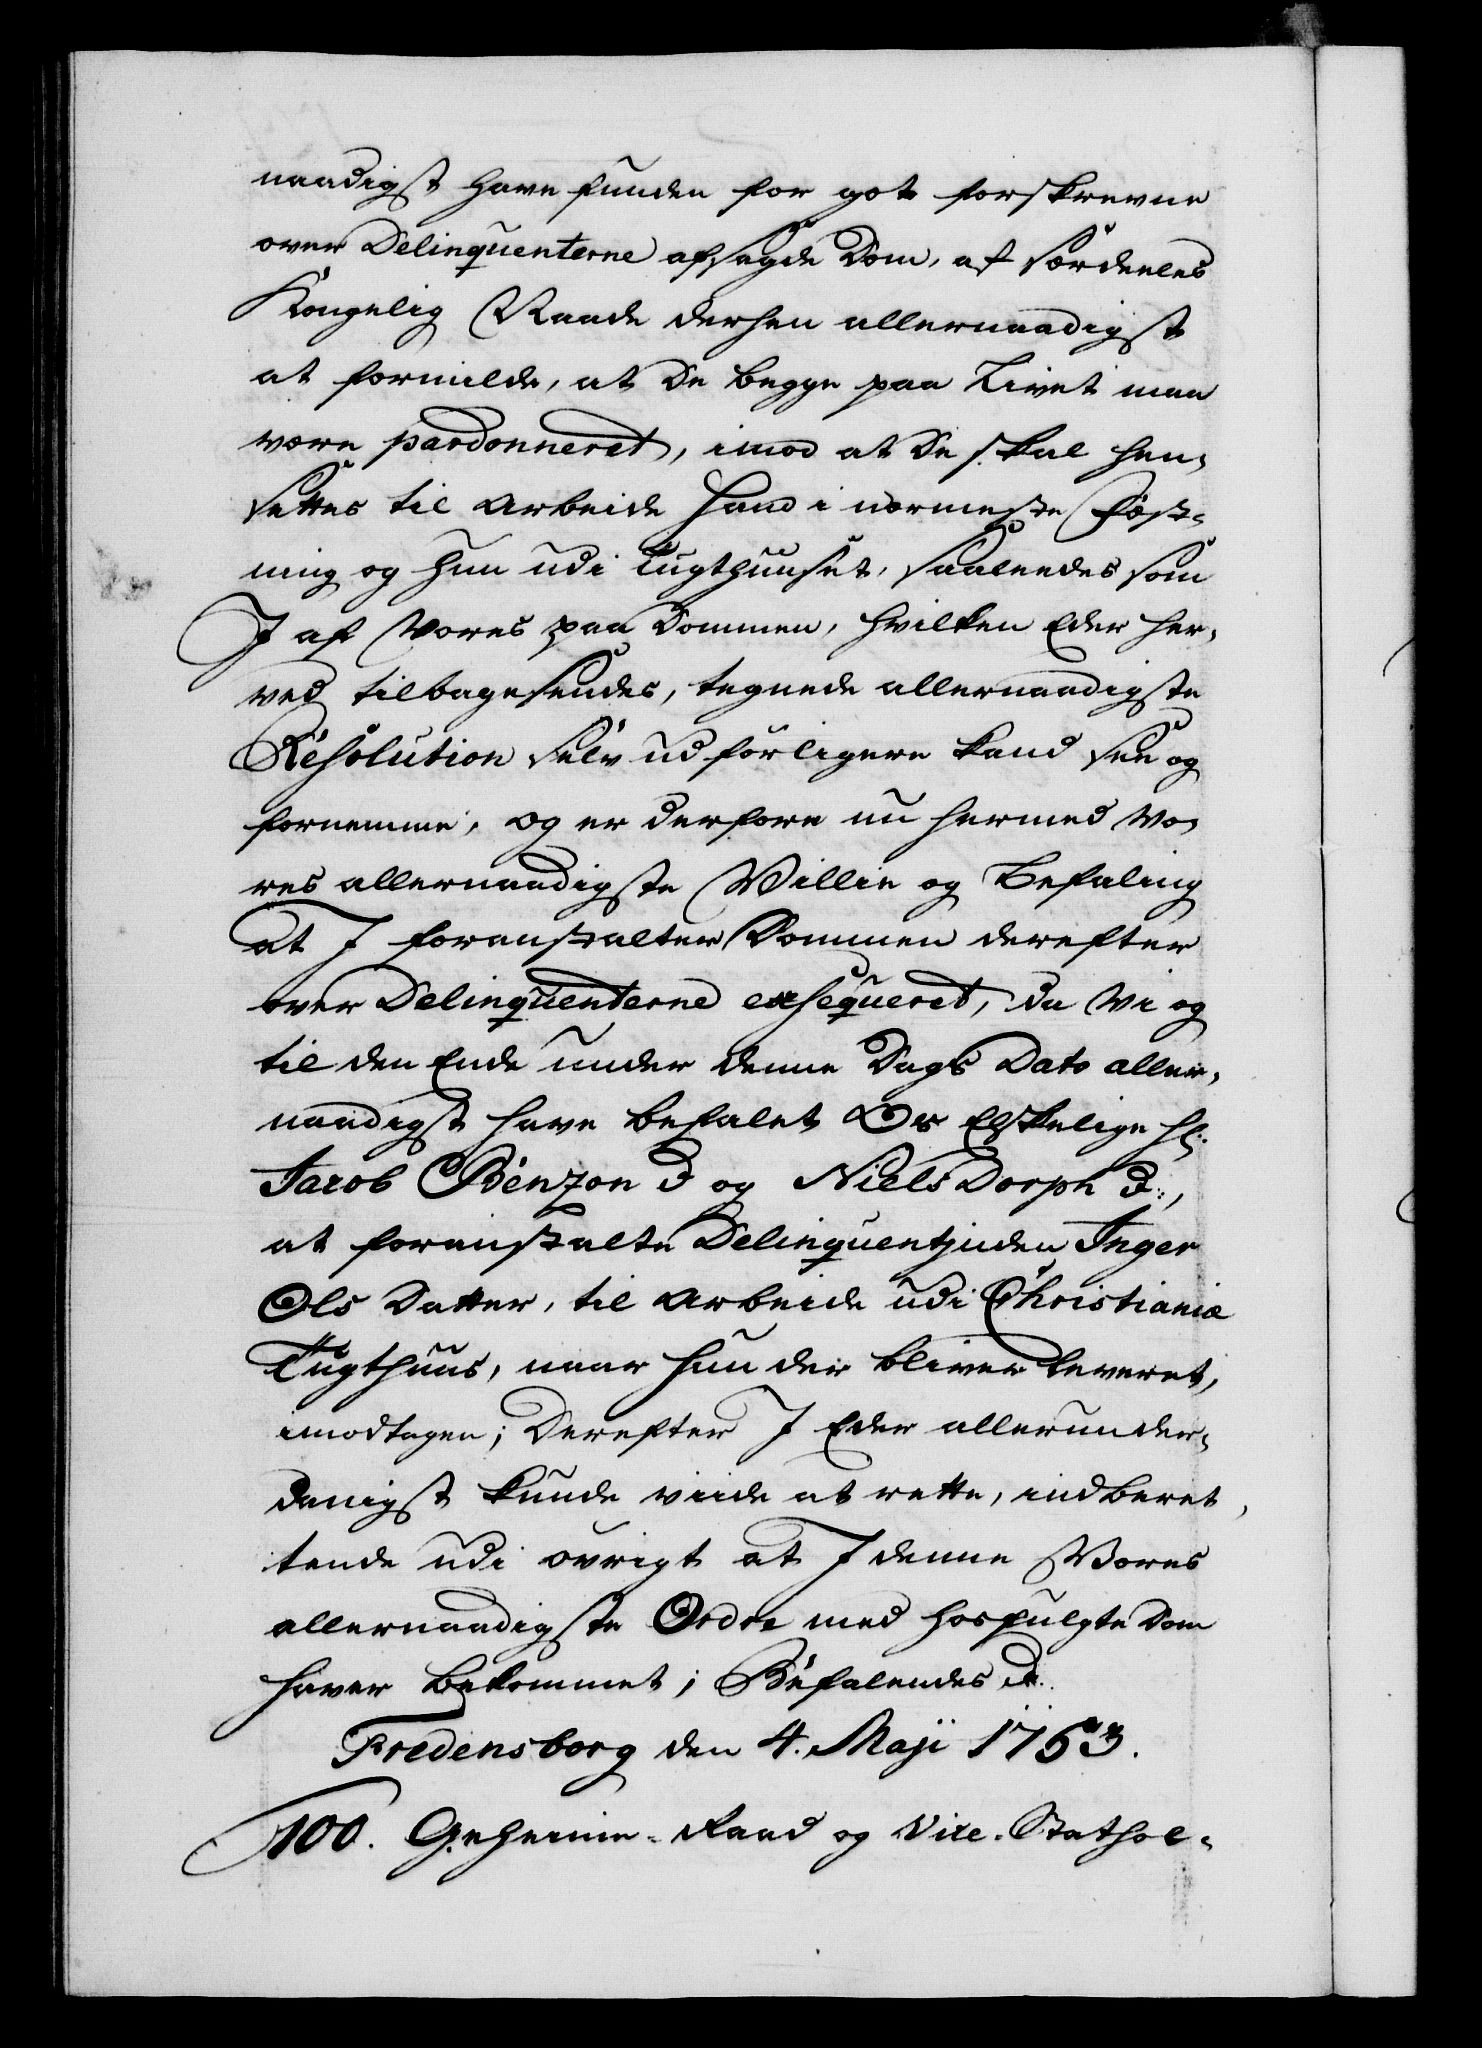 naadigst have funden for got forskrevne
over Delinquenterne afsagde Dom, af særdeeles
Kongelig Naade derhen allernaadigst
at formilde, at De begge paa Livet maa
være pardonneret, imod at De skal hen-
settes til Arbeide hand i nærmeste Fæst-
ning og hun udi Tugthuuset, saaleedes som
I af Vores paa Dommen, hvilken Eder her-
ved tilbagesendes, tegnede allernaadigste
Resolution selv udførligere kand see og
fornemme, og er derfore nu hermed Vo-
res allernaadigste Villie og Befaling
at I foranstalter Dommen derefter
over Delinquenterne exsequeret, da Vi og
til den Ende under denne Dags Dato aller-
naadigst have befalet Os Elskelige Hr:
Jacob Benzon ꝛc og Niels Dorph ꝛc:,
at foranstalte Delinquentinden Inger
Ols Datter, til Arbeide udi Christianiæ
Tugthuus, naar hun der bliver leveret,
imodtagen; Derefter I Eder allerunder-
danigst kunde viide at rette, indberet-
tende udi øvrigt at I denne Vores
allernaadigste Ordre med hosfulgte Dom
haver bekommet; Befalendes ꝛc.
Fredensborg den 4. Maji 1753.
100. Geheime-Raad og Vice-Stathol-